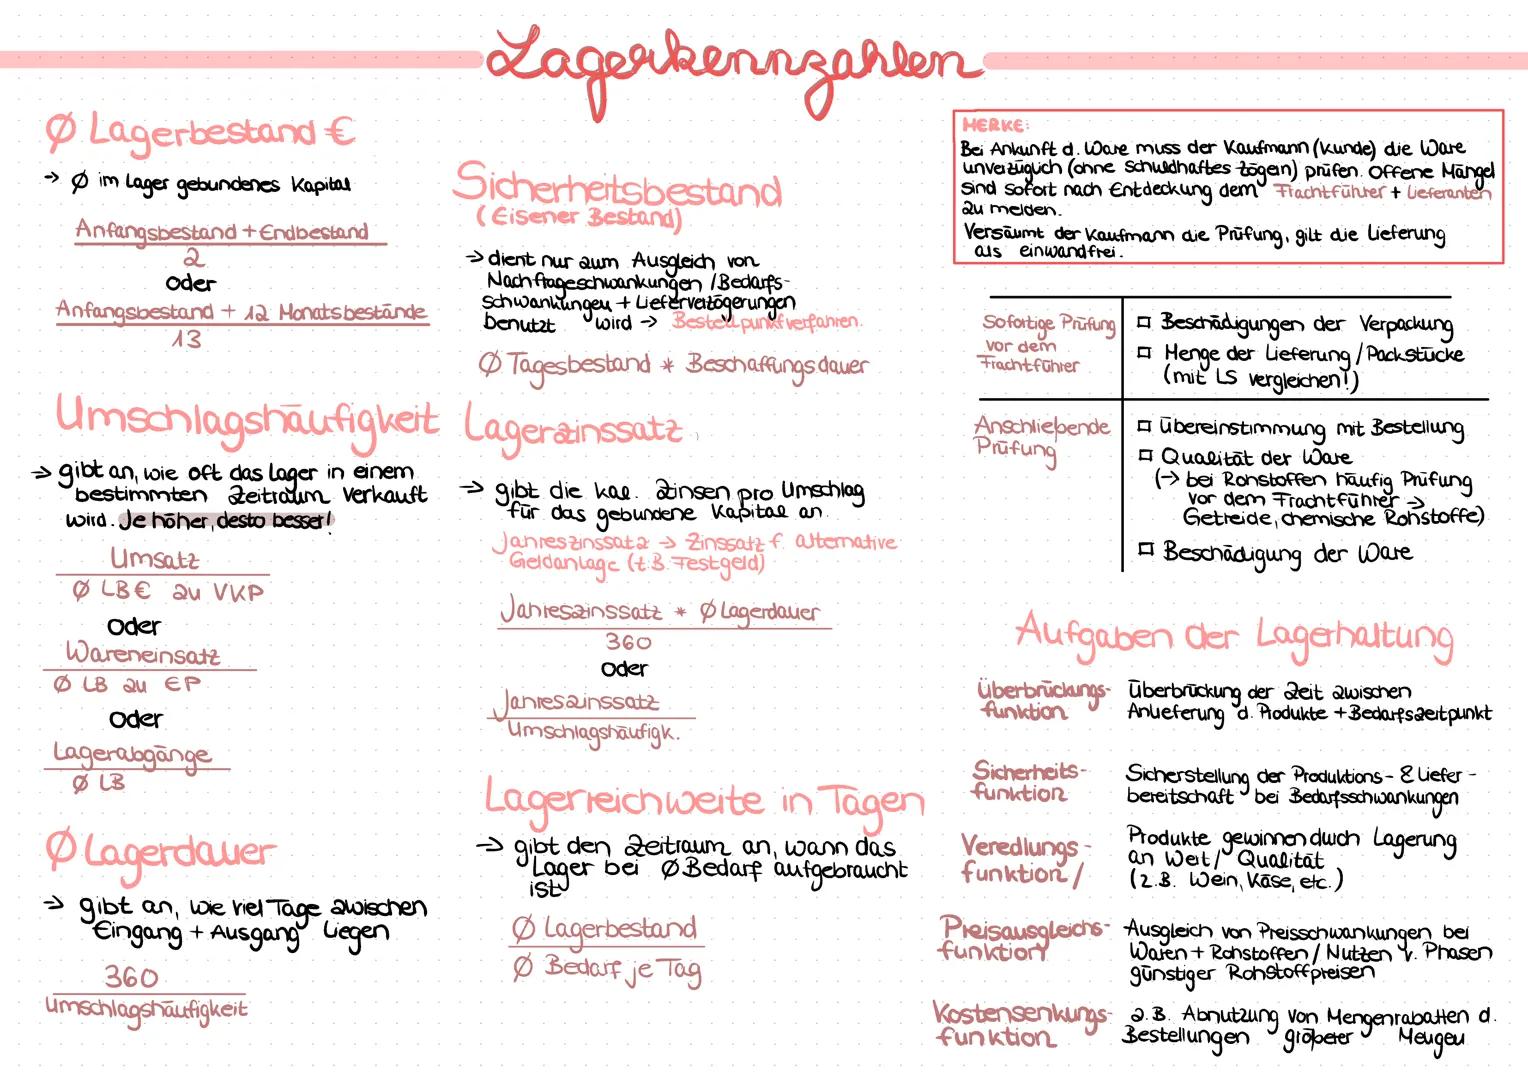 Lagerkennzahlen
Ø Lagerbestand €
→ Ø im Lager gebundenes Kapital
Anfangsbestand + Endbestand
2
oder
Anfangsbestand + 12 Monatsbestände
13
Umschlagshäufigkeit
→ gibt an, wie oft das Lager in einem
bestimmten Zeitraum verkauft
wird. Je höher, desto besser!
Umsatz
Ø LB € zu VKP
oder
Wareneinsatz
Ø LB zu EP
oder
Lagerabgänge
Ø LB
Ø Lagerdauer
→ gibt an, wie viel Tage zwischen
Eingang + Ausgang liegen
360
Umschlagshäufigkeit
Sicherheitsbestand
(Eisener Bestand)
→ dient nur zum Ausgleich von
Nachfrageschwankungen / Bedarfs-
schwankungen + Lieferverzögerungen
Benutzt wird → Bestellpunktverfahren.
Ø Tagesbestand * Beschaffungsdauer
Lagerzinssatz
→ gibt die kal. Zinsen pro Umschlag
für das gebundene Kapital an.
Jahreszinssatz → Zinssatz f. alternative
Geldanlage (z.B. Festgeld)
Jahreszinssatz * Ø Lagerdauer
360
oder
Jahreszinssatz
Umschlagshäufigk.
Lagerreichweite in Tagen
→ gibt den Zeitraum an, wann das
Lager bei Ø Bedarf aufgebraucht
ist
Ø Lagerbestand
Ø Bedarf je Tag
MERKE:
Bei Ankunft d. Ware muss der Kaufmann (Kunde) die Ware
unverzüglich (ohne schuldhaftes zögern) prüfen. Offene Mängel
sind sofort nach Entdeckung dem Frachtführer + Lieferanten
zu melden.
Versäumt der Kaufmann die Prüfung, gilt die Lieferung
als einwandfrei.
Sofortige Prüfung
vor dem
Frachtführer
□ Beschädigungen der Verpackung
□ Menge der Lieferung / Packstücke
(mit LS vergleichen!)
Anschließende
Prüfung
□ Übereinstimmung mit Bestellung
□ Qualität der Ware
(→ bei Rohstoffen häufig Prüfung
vor dem Frachtführer →
Getreide, chemische Rohstoffe)
□ Beschädigung der Ware
Aufgaben der Lagerhaltung
Überbrückungs-
funktion
Überbrückung der Zeit zwischen
Anlieferung d. Produkte + Bedarfszeitpunkt
Sicherheits-
funktion
Sicherstellung der Produktions- & Liefer-
bereitschaft bei Bedarfsschwankungen
Veredlungs-
funktion /
Produkte gewinnen durch Lagerung
an Wert / Qualität
(z.B. Wein, Käse, etc.)
Preisausgleichs-
funktion
Ausgleich von Preisschwankungen bei
Waren + Rohstoffen / Nutzen v. Phasen
günstiger Rohstoffpreisen
Kostensenkungs-
funktion
z.B. Abnutzung von Mengenrabatten d.
Bestellungen größerer Mengen